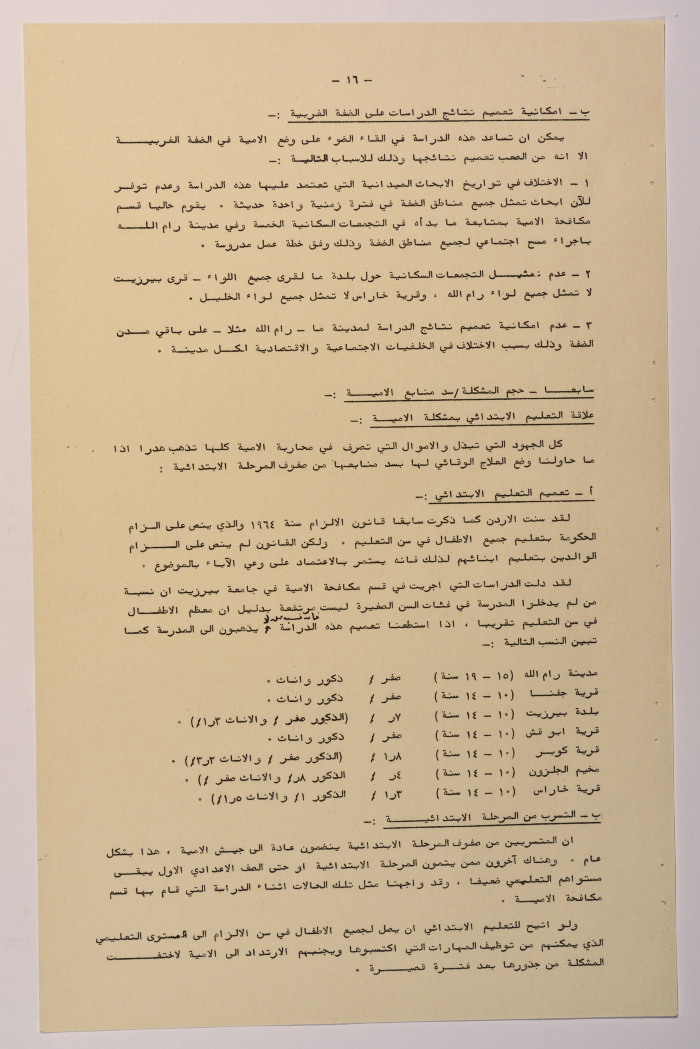 - ١٦ -
ب - امكانية تعميم نتائج الدراسات على الضفة الغربية :-
يمكن ان تساعد هذه الدراسة في القاء الضوء على وضع الامية في الضفة الغربيـــة
الا انه من الصعب تعميم نتائجها وذلك للاسباب التالية :-
١ - الاختلاف في تواريخ الابحاث الميدانية التي تعتمد عليها هذه الدراسة وعدم توفر
للآن ابحاث تمثل جميع مناطق الضفة في فترة زمنية واحدة حديثة . يقوم حاليا قسم
مكافحة الامية بمتابعة ما بدأه في التجمعات السكانية الخمسة وفي مدينة رام اللــه
باجراء مسح اجتماعي لجميع مناطق الضفة وذلك وفق خطة عمل مدروسة .
٢ - عدم تمثيـل التجمعات السكانية حول بلدة ما لقرى جميع اللواء - قرى بيرزيت
لا تمثل جميع لواء رام الله ، وقرية خاراس لا تمثل جميع لواء الخليل .
٣ - عدم امكانية تعميم نتائج الدراسة لمدينة ما - رام الله مثلا - على باقي مــدن
الضفة وذلك بسبب الاختلاف في الخلفيات الاجتماعية والاقتصادية لكــل مدينـة .
سابعــا - حجم المشكلة/سد منابع الاميـة :-
علاقة التعليم الابتدائي بمشكلة الاميـة :-
كل الجهود التي تبذل والاموال التي تصرف في محاربة الامية كلها تذهب هدرا اذا
ما حاولنا وضع العلاج الوقائي لها بسد منابعها من صفوف المرحلة الابتدائية :
أ - تعميم التعليم الابتدائي :-
لقد سنت الاردن كما ذكرت سابقا قانون الالزام سنة ١٩٦٤ والذي ينص على الزام
الحكومة بتعليم جميع الاطفال في سن التعليم . ولكن القانون لم ينص على الـــزام
الوالدين بتعليم ابنائهم لذلك فانه يستمر بالاعتماد على وعي الآباء بالموضوع .
لقد دلت الدراسات التي اجريت في قسم مكافحة الامية في جامعة بيرزيت ان نسبة
من لم يدخلوا المدرسة في فئات السن الصغيرة ليست مرتفعة بدليل ان معظم الاطفـال
في سن التعليم تقريبا ، اذا استطعنا تعميم هذه الدراسة يذهبون الى المدرسة كمـا
تبين النسب التالية :-
مدينة رام الله (١٥ - ١٩ سنة) صفر ٪ ذكور واناث .
قرية جفنـا (١٠ - ١٤ سنة) صفر ٪ ذكور واناث .
بلدة بيرزيت (١٠ - ١٤ سنة) ٧ر ٪ (الذكور صفر ٪ والاناث ٣ر١٪) .
قرية ابو قش (١٠ - ١٤ سنة) صفر ٪ ذكور واناث .
قرية كوبــر (١٠ - ١٤ سنة) ٨ر١ ٪ (الذكور صفر ٪ والاناث ٣ر٣٪) .
مخيم الجلزون (١٠ - ١٤ سنة) ٤ر ٪ الذكور ٨ر٪ والاناث صفر ٪) .
قرية خاراس (١٠ - ١٤ سنة) ٣ر١ ٪ الذكور ١٪ والاناث ٥ر١٪) .
ب - التسرب من المرحلة الابتدائيــة :-
ان المتسربين من صفوف المرحلة الابتدائية ينضمون عادة الى جيش الامية ، هذا بشكل
عام . وهناك آخرون ممن ينهون المرحلة الابتدائية او حتى الصف الاعدادي الاول يبقــى
مستواهم التعليمي ضعيفا ، وقد واجهنا مثل تلك الحالات اثناء الدراسة التي قام بها قسم
مكافحة الاميـة .
ولو اتيح للتعليم الابتدائي ان يصل لجميع الاطفال في سن الالزام الى المستوى التعليمي
الذي يمكنهم من توظيف المهارات التي اكتسبوها ويجنبهم الارتداد الى الامية لاختفــت
المشكلة من جذورها بعد فتـرة قصيـرة .